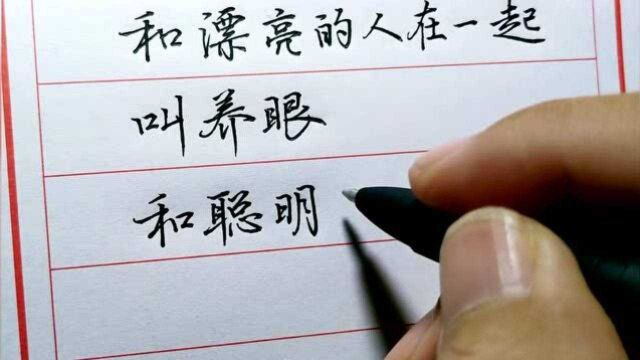 和漂亮的人在一起
叫养眼
和聪明